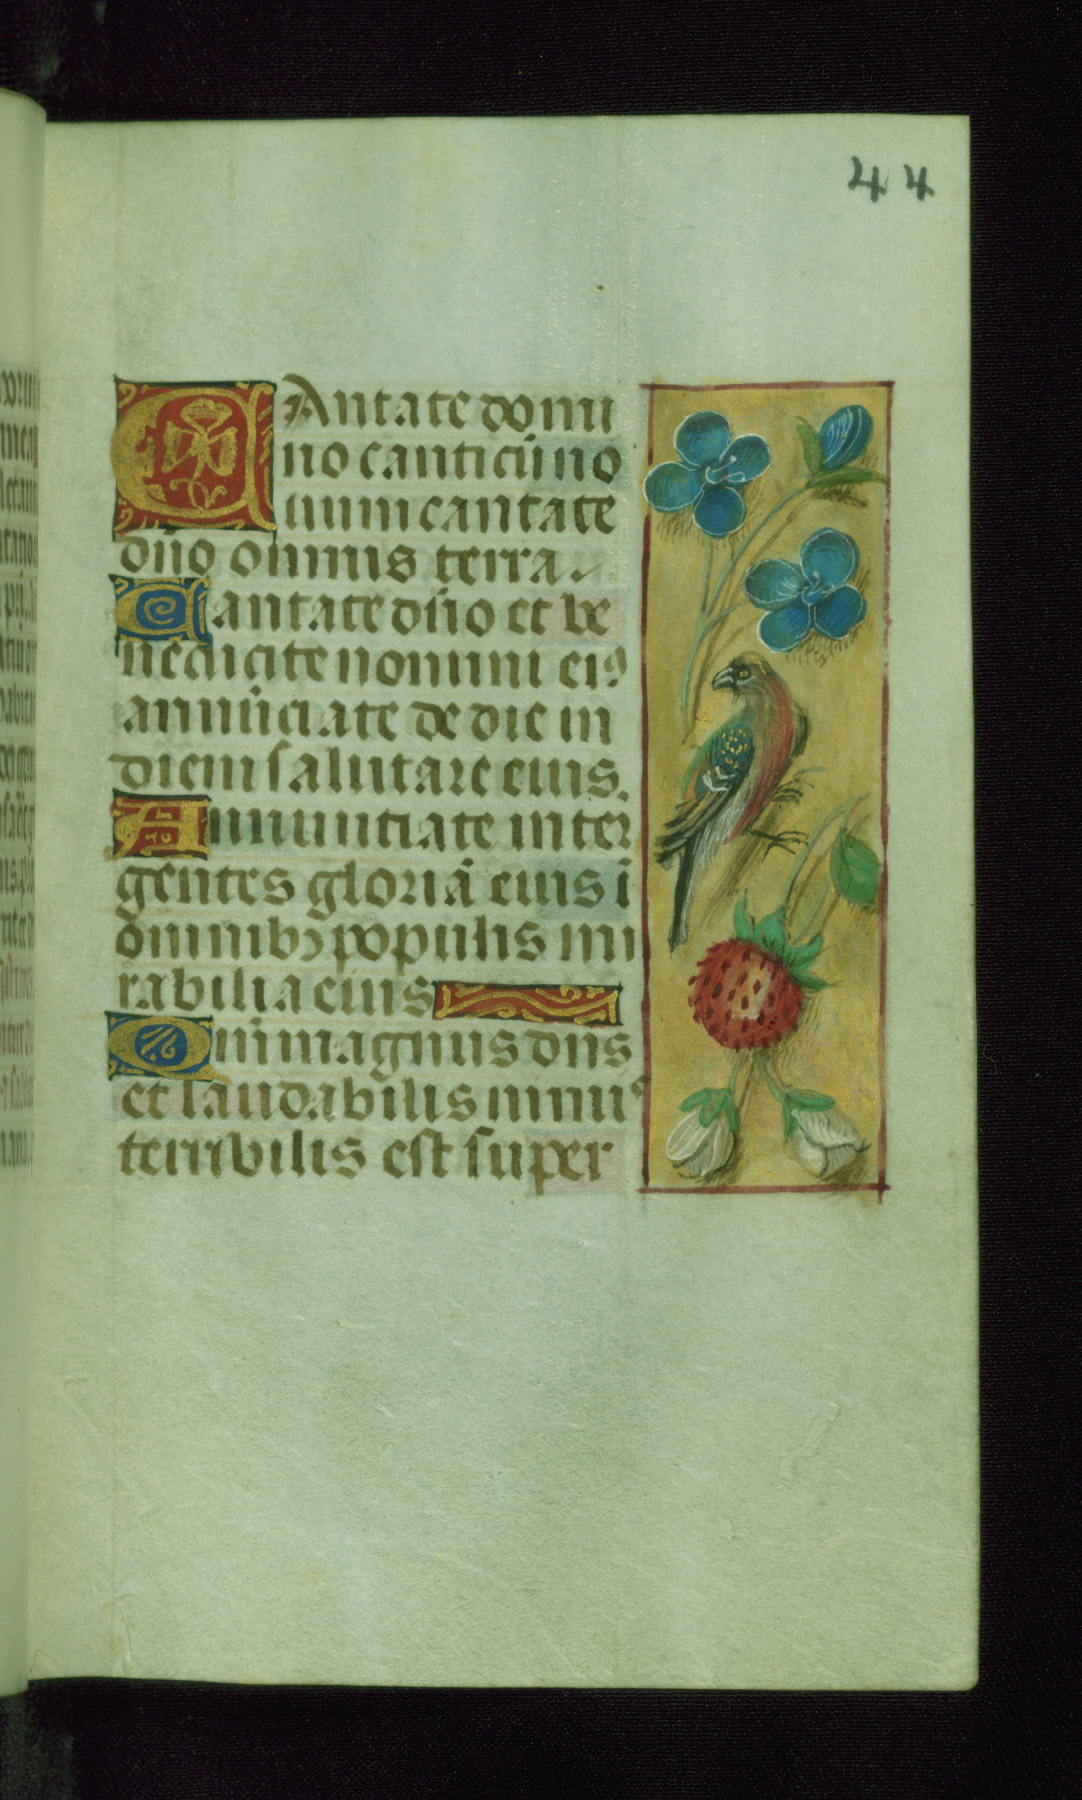 44
CAntate domi
no canticũ no
uum cantate
dño omnis terra.
Cantate dño et be
nedicite nomini eiꝰ
annũciate de die in
diem salutare eius.
Annunciate inter
gentes gloriã eius ĩ
omnibꝫ populis mi
rabilia eius
Qm̃ magnus dñs
et laudabilis nimis
terribilis est super